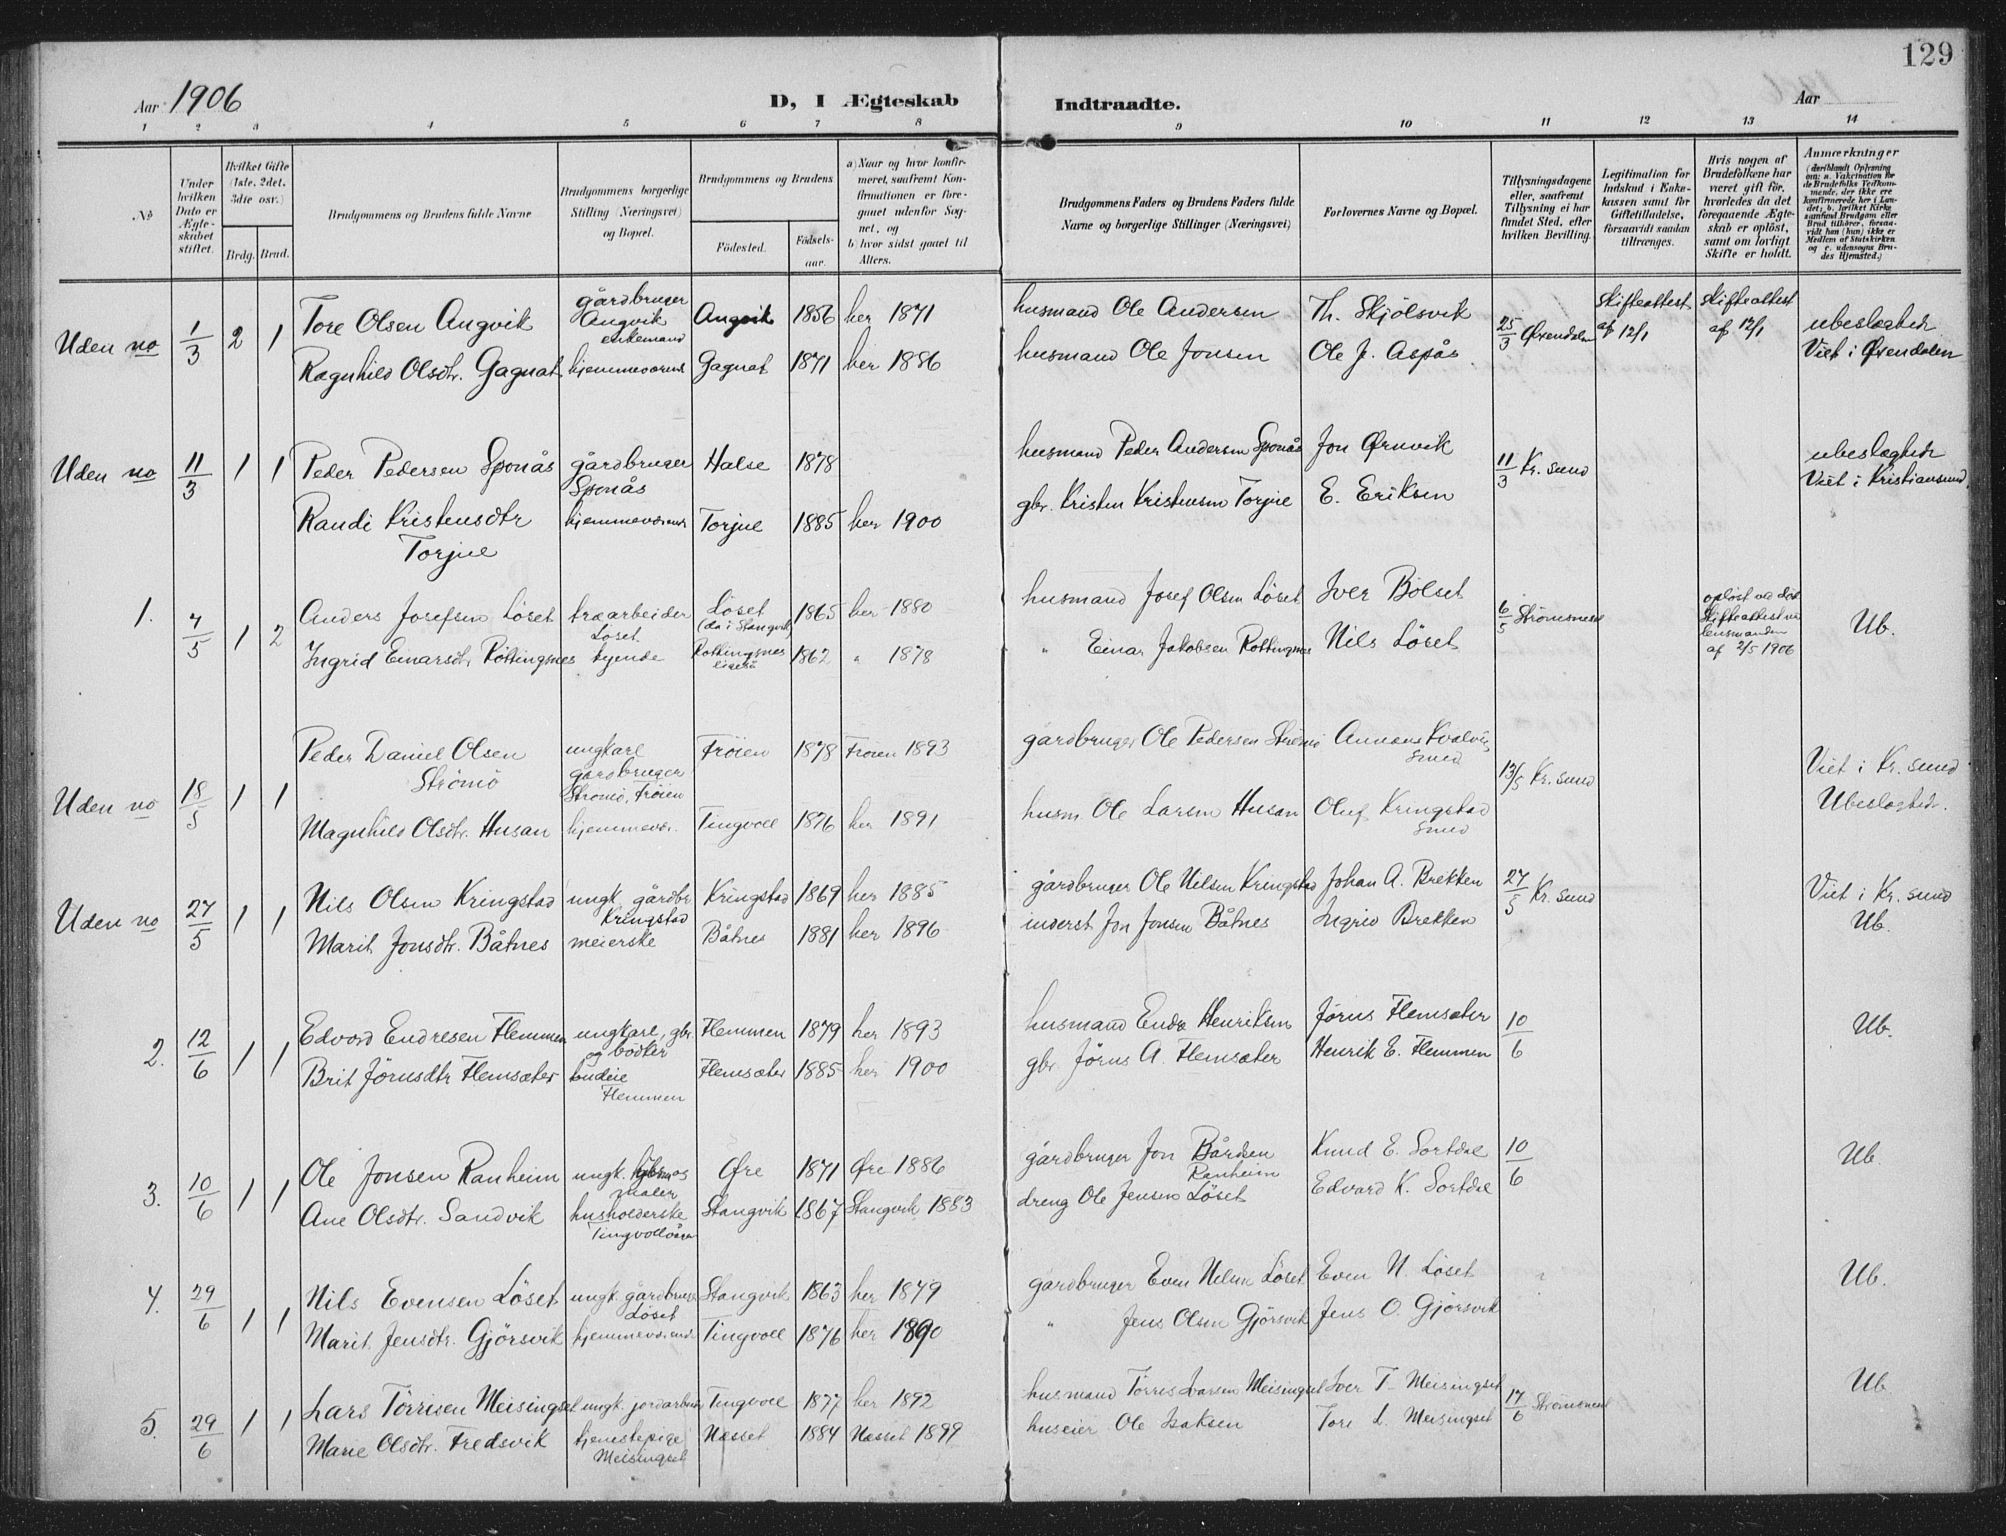 129
Aar 1906
D, I Ægteskab Indtraadte.
Aar
1 2 3 4 5 6 7 8 9 10 11 12 13 14
No
Under hvilken Dato er Ægteskabet stiftet.
Hvilket Gifte (1ste, 2det, 3die osv.)
Brdg. Brud.
Brudgommens og Brudens fulde Navne
Brudgommens borgerlige Stilling (Næringsvei) og Bopæl.
Brudgommens og Brudens
Fødested.
Fødselsaar.
a) Naar og hvor konfirmeret, saafremt Konfirmationen er foregaaet udenfor Sognet, og
b) hvor sidst gaaet til Alters.
Brudgommens Faders og Brudens Faders fulde Navne og borgerlige Stillinger (Næringsvei)
Forlovernes Navne og Bopæl.
Tillysningsdagene eller, saafremt Tillysning ei har fundet Sted, efter hvilken Bevilling.
Legitimation for Indskud i Enkekassen samt for Giftetilladelse, forsaavidt saadan tiltrænges.
Hvis nogen af Brudefolkene har været gift før, hvorledes da det foregaaende Ægteskab er opløst, samt om lovligt Skifte er holdt.
Anmærkninger
(deriblandt Oplysning om: a. Vakcination for de Brudefolks Vedkommende, der ikke ere konfirmerede her i Landet; b. hvilket Kirkesamfund Brudgom eller Brud tilhører, forsaavidt han (hun) ikke er Medlem af Statskirken og c. udensogns Brudes Hjemsted.)
Uden no 1/3 2 1 Tore Olsen Angvik gårdbruger Angvik enkemand Angvik 1856 her 1871 husmand Ole Andersen Th. Skjölsvik 25/3 Øxendalen Skifteattest af 12/1 Skifteattest af 12/1 ubeslægtede
Ragnhild Olsdtr. Gagnat hjemmeværende Gagnat 1871 her 1886 husmand Ole Jonsen Ole J. Aspås Viet i Øxendalen
Uden no 11/3 1 1 Peder Pedersen Sponås gårdbruger Sponås Halse 1878 husmand Peder Andersen Sponås Jon Ørnvik 11/3 Kr. sund ubeslægtede
Randi Kristensdtr Torjue hjemmeværende Torjue 1885 her 1900 gbr. Kristen Kristensen Torjue E. Eriksen Viet i Kristiansund.
1. 7/5 1 2 Anders Josefsen Löset træarbeider Löset Löset (da i Stangvik) 1865 her 1880 husmand Josef Olsen Löset Iver Bölset 6/5 Strömsneset opløst ved død Skifteattest lensmanden af 2/5 1906 Ub.
Ingrid Einarsdtr. Röttingsnes tjende Rottingsnes 1862 " 1878 " Einar Jakobsen Rottingsnes Nils Löset
Uden no 18/5 1 1 Peder Daniel Olsen Strömö ungkarl gårdbruger Strömö, Fröien Fröien 1878 Fröien 1893 gårdbruger Ole Pedersen Strömö 13/5 Kr. sund Viet i Kr. sund
Magnhild Olsdtr. Husan hjemmevær. Tingvoll 1876 her 1891 husm. Ole Larsen Husan Oluf Kringstad Smed Ubeslægtede.
Uden no 27/5 1 1 Nils Olsen Kringstad ungk. gårdbr. Kringstad Kringstad 1869 her 1885 gårdbruger Ole Nilsen Kringstad Johan A. Brekken 27/5 Kr. sund Viet i Kr. sund
Marit Jonsdtr. Båtnes meierske Båtnes 1881 her 1896 inderst Jon Jonsen Båtnes Ingrid Brekken Ub.
2. 12/6 1 1 Edvard Endresen Flemmen ungkarl, gbr. og bödker Flemmen 1879 her 1893 husmand Endre Henriksen Jörus Flemsæter 10/6 Ub.
Brit Jörusdtr Flemsæter budeie Flemmen Flemsæter 1885 her 1900 gbr. Jörus A. Flemsæter Henrik E. Flemmen
3. 10/6 1 1 Ole Jonsen Ranheim ungk. maler Øre 1871 Øre 1886 gårdbruger Jon Bårdsen Ranheim Knud E. Sortdal 10/6 Ub.
Ane Olsdtr. Sandvik husholderske Tingvoll Stangvik 1867 Stangvik 1883 dreng Ole Jensen Löset Edvard K. Sortdal
4. 29/6 1 1 Nils Evensen Löset ungk. gårdbruger Löset Stangvik 1863 her 1879 gårdbruger Even Nilsen Löset Even N. Löset Ub.
Marit Jensdtr. Gjörsvik hjemmeværende Tingvoll 1876 her 1890 " Jens Olsen Gjörsvik Jens O. Gjörsvik
5. 29/6 1 1 Lars Törrisen Meisingset ungk. jordarbeider Tingvoll 1877 her 1892 husmand Törres Ivarsen Meisingset Iver T. Meisingset 17/6 Strömsneset Ub
Marie Olsdtr. Fredsvik tjenestepige Meisingset Næsset 1884 Næsset 1899 huseier Ole Isaksen Tore L. Meisingset